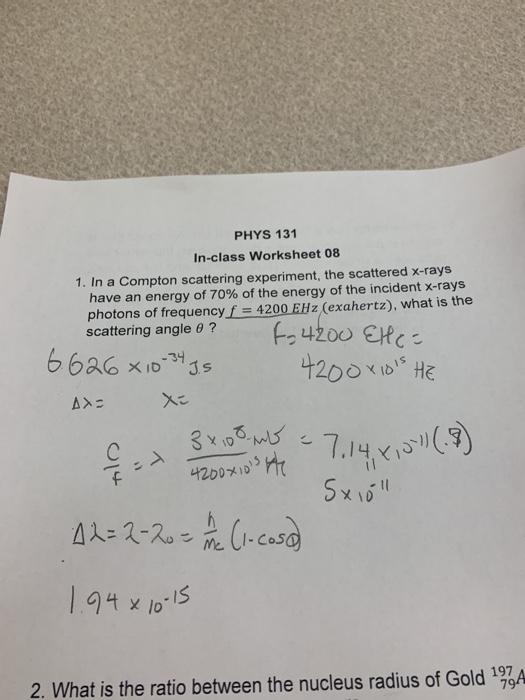 PHYS 131
In-class Worksheet 08
1. In a Compton scattering experiment, the scattered x-rays
have an energy of 70% of the energy of the incident x-rays
photons of frequency f = 4200 EHz (exahertz), what is the
scattering angle θ ?
f = 4200 EHz =
6 626 × 10⁻³⁴ J.s
4200 × 10¹⁵ Hz
Δλ = λ =
c/f = λ 3 × 10⁸ m/s / 4200×10¹⁵ Hz = 7.14 × 10⁻¹¹ (.7)
11
5 × 10⁻¹¹
Δλ = λ - λ₀ = h/mc (1 - cosθ)
1.94 × 10⁻¹⁵
2. What is the ratio between the nucleus radius of Gold ¹⁹⁷₇₉A